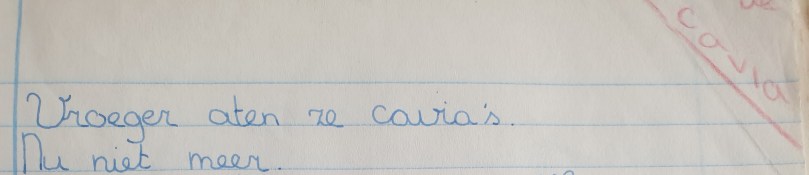 cavia
Vroeger aten ze cavia's.
Nu niet meer.